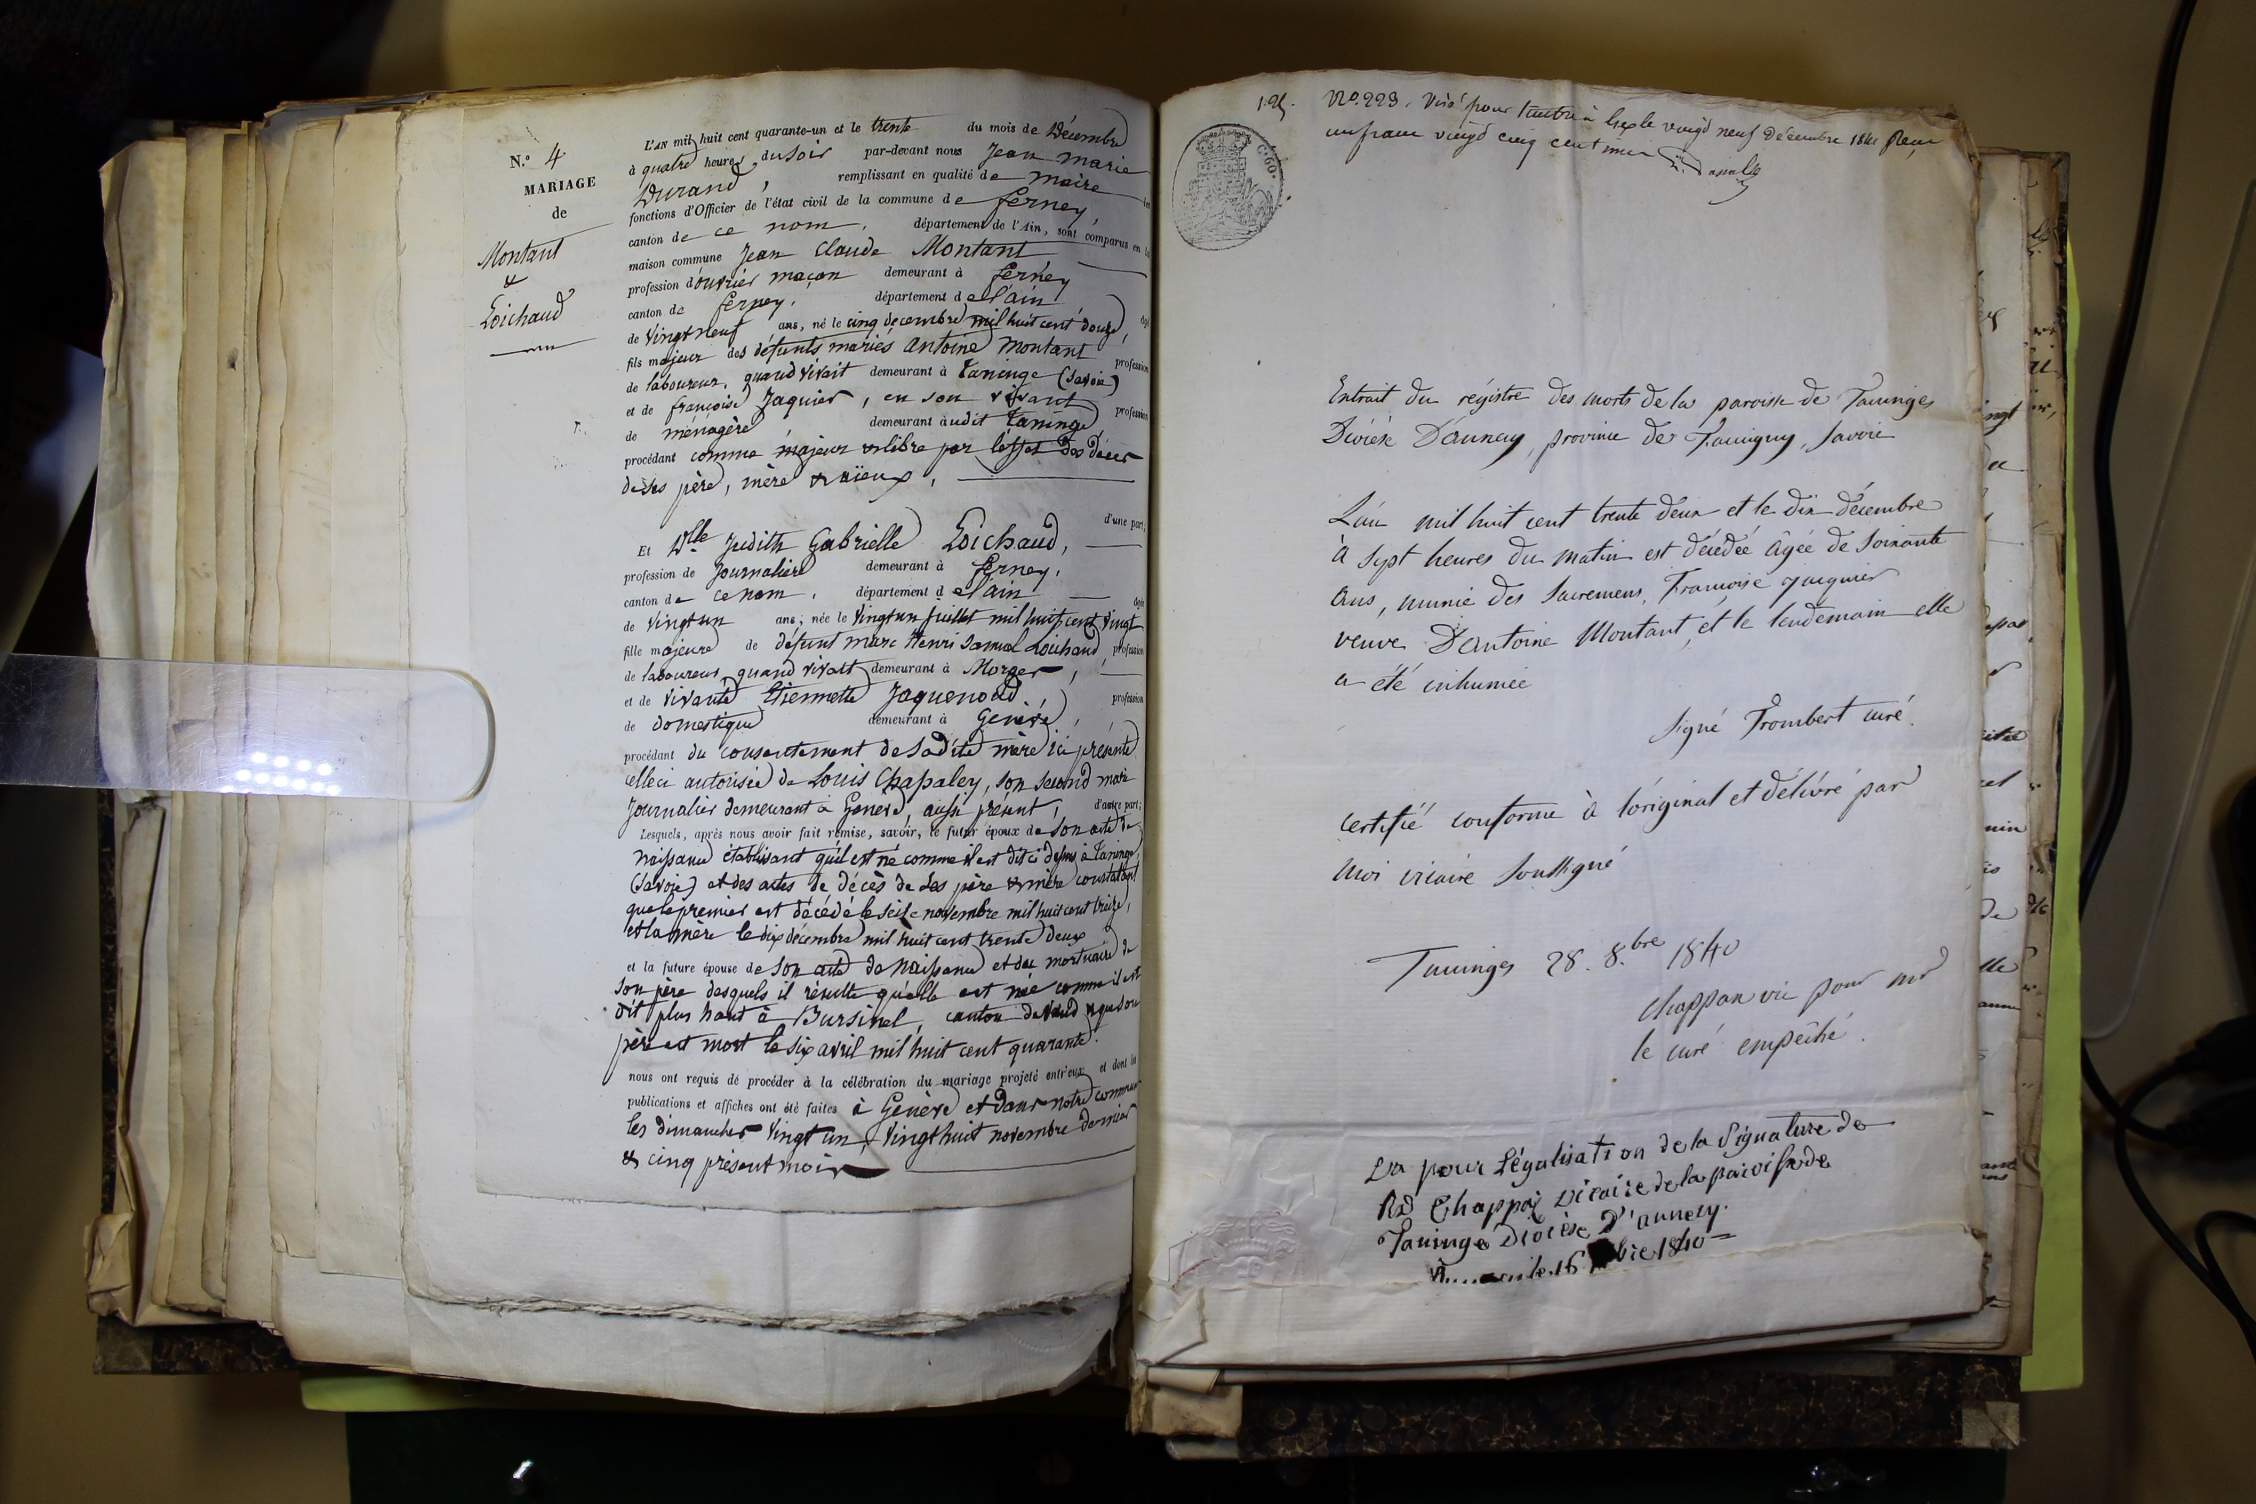 N.º 4
MARIAGE
de
Montant
&
Loichaud
L'AN mil huit cent quarante-un et le trente du mois de Décembre
à quatre heures du soir par-devant nous Jean Marie
Durand, remplissant en qualité de maire les
fonctions d'Officier de l'état civil de la commune de ferney,
canton de ce nom, département de l'Ain, sont comparus en la
maison commune Jean Claude Montant
profession d'ouvrier maçon demeurant à ferney
canton de ferney, département de l'ain, âgé
de vingt neuf ans, né le cinq decembre mil huit cent douze,
fils majeur des défunts mariés Antoine Montant profession
de laboureur, quand vivait demeurant à Taninge (Savoie)
et de françoise Jaquier, en son vivant profession
de ménagère demeurant audit Taninge
procédant comme majeur & libre par l'effet des décès
de ses père, mère & aïeux,
d'une part;
Et Dlle Judith Gabrielle Loichaud,
profession de Journalière demeurant à ferney,
canton de ce nom, département de l'ain âgée
de vingt un ans; née le vingt un juillet mil huit cent vingt
fille majeure de défunt Marc Henri Samuel Loichaud, profession
de laboureur quand vivait demeurant à Morges,
et de vivante Etiennette Jaquenoud, profession
de domestique demeurant à Genève,
procédant du consentement de sadite mère ici présente
celleci autorisée de Louis Chapaley, son second mari
Journalier demeurant à Genève, aussi présent, d'autre part;
Lesquels, après nous avoir fait remise, savoir, le futur époux de son acte de
naissance établissant qu'il est né comme il est dit ci dessus à Taninge
(Savoie) et des actes de décès de ses père & mère constatant
que le premier est décédé le seize novembre mil huit cent treize,
et la mère le dix décembre mil huit cent trente deux
et la future épouse de son acte de naissance et du mortuaire de
son père desquels il résulte qu'elle est née comme il est
dit plus haut à Bursinel, canton de Vaud & que son
père est mort le six avril mil huit cent quarante.
nous ont requis de procéder à la célébration du mariage projeté entr'eux et dont les
publications et affiches ont été faites à Genève et dans notre commune
les dimanches vingt un, vingt huit novembre dernier
& cinq présent mois
1.25. No. 223. Visé pour timbre à Gex le vingt neuf décembre 1841 Reçu
un franc vingt cinq centimes
C. 60.
Extrait du régistre des morts de la paroisse de Taninges
Diocèse D'annecy, province de Faucigny, Savoie
L'an mil huit cent trente deux et le dix décembre
à sept heures du matin est décédée âgée de soixante
ans, munie des Sacremens, Françoise Jacquier
veuve D'antoine Montant, et le lendemain elle
a été inhumée
signé Frombert curé.
certifié conforme à l'original et délivré par
moi vicaire soussigné
Taninges 28. 8.bre 1840
Chappaz vic pour mr
le curé empêché.
Vu pour Légalisation de la Signature de
Rd Chappaz Vicaire de la paroisse de
Taninge Diocèse d'annecy.